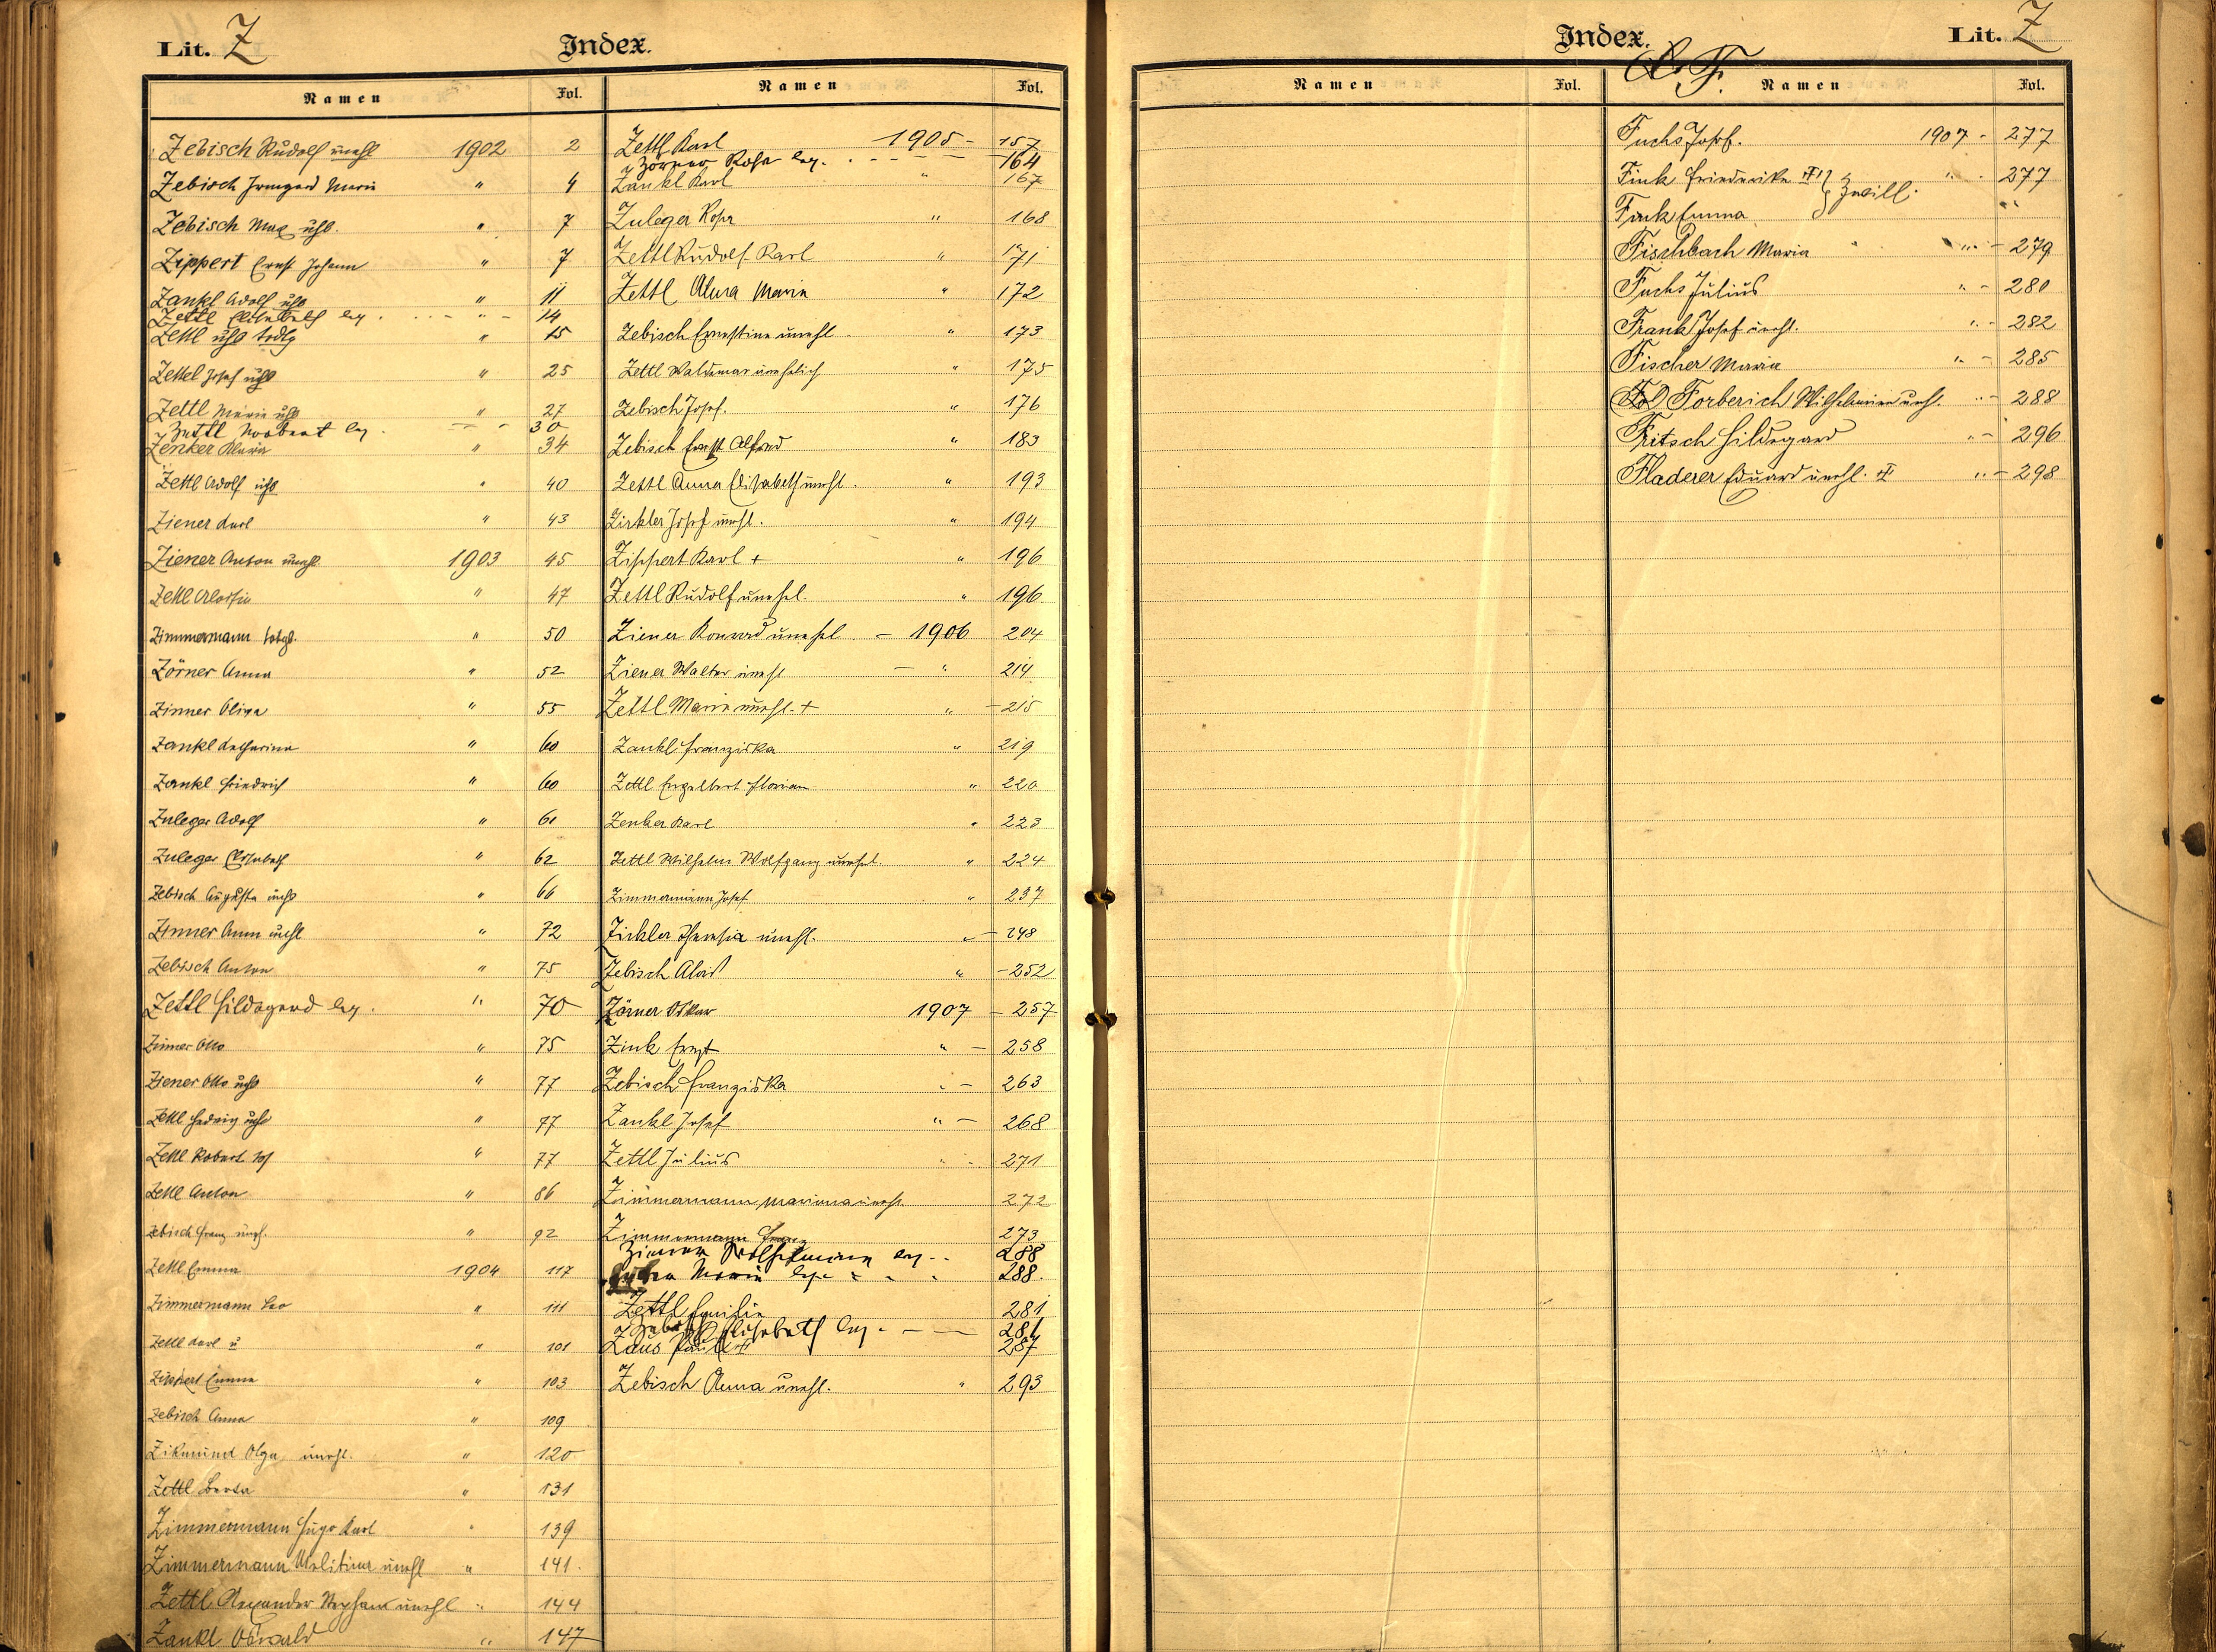 Lit. Z
Index.
Namen Fol.
Zebisch Rudolf unehl 1902 2
Zebisch Irmgard Maria " 4
Zebisch Max uhl. " 7
Zippert Ernst Johann " 7
Zankl Adolf uhl " 11
Zettl Elisabeth leg. " 14
Zettl uhl " 15
Zettl Josef uhl " 25
Zettl Maria uhl " 27
Zettl Norbert leg. 30
Zenker Klara " 34
Zettl Adolf uhl " 40
Ziener Karl " 43
Ziener Anton unehl 1903 45
Zettl Aloisia " 47
Zimmermann totgb. " 50
Zörner Anna " 52
Zinner Olga " 55
Zankl Katharina " 60
Zankl Friedrich " 60
Zuleger Adolf " 61
Zuleger Elisabeth " 62
Zebisch Augusta unehl " 66
Zinner Anna unehl " 72
Zebisch Anton " 75
Zettl Hildegard leg. " 70
Zinner Otto " 75
Ziener Otto uehl " 77
Zettl Hedwig uehl " 77
Zettl Robert " 77
Zettl Anton " 86
Zebisch Franz unehl. " 92
Zettl Emma 1904 117
Zimmermann Leo " 111
Zettl Karl u " 101
Zippert Emma " 103
Zebisch Anna " 109
Zikmund Olga unehl. " 120
Zettl Berta " 131
Zimmermann Hugo Karl " 139
Zimmermann unehl " 141.
Zettl Alexander unehl " 144
Zankl Oswald " 147
Namen Fol.
Zettl Karl 1905 - 157
Zörner Rosa leg. 164
Zankl Karl " 167
Zuleger Rosa " 168
Zettl Rudolf Karl " 171
Zettl Alma Maria " 172
Zebisch Ernestine unehl " 173
Zettl Waldemar unehelich " 175
Zebisch Josef. " 176
Zebisch Ernst Alfred " 183
Zettl Anna Elisabeth unehl. " 193
Zirkler Josef unehl. " 194
Zippert Karl + " 196
Zettl Rudolf unehel. " 196
Ziener Konrad unehel - 1906 204
Ziener Walter unehl - " 214
Zettl Maria unehl. + " - 215
Zankl Franziska " 219
Zettl Engelbert Florian " 220
Zenker Karl " 223
Zettl Wilhelm Wolfgang unehel. " 224
Zimmermann Josef " 237
Zirkler Theresia unehl. " - 248
Zebisch Alois " - 252
Zörner Oskar 1907 - 257
Zink Ernst " - 258
Zebisch Franziska " - 263
Zankl Josef " - 268
Zettl Julius " - 271
Zimmermann Marianna unehl. 272
Zimmermann Franz 273
Wilhelmine leg. 288
Maria leg. " " " 288.
Zettl Emilie 281
Zebisch Elisabeth leg. - - 281
Zaus 287
Zebisch Anna unehl. " 293
Index.
Lit. Z
Namen Fol.
F.
Namen Fol.
Fuchs Josef. 1907 - 277
Fink Friederike } Zwill. " - 277
Fink Emma "
Fischbach Maria " - 279
Fuchs Julius " - 280
Frank Josef unehl. " - 282
Fischer Maria " - 285
Forberich Wilhelmine unehl. " - 288
Fritsch Hildegard " - 296
Fladerer Eduard unehl. " - 298